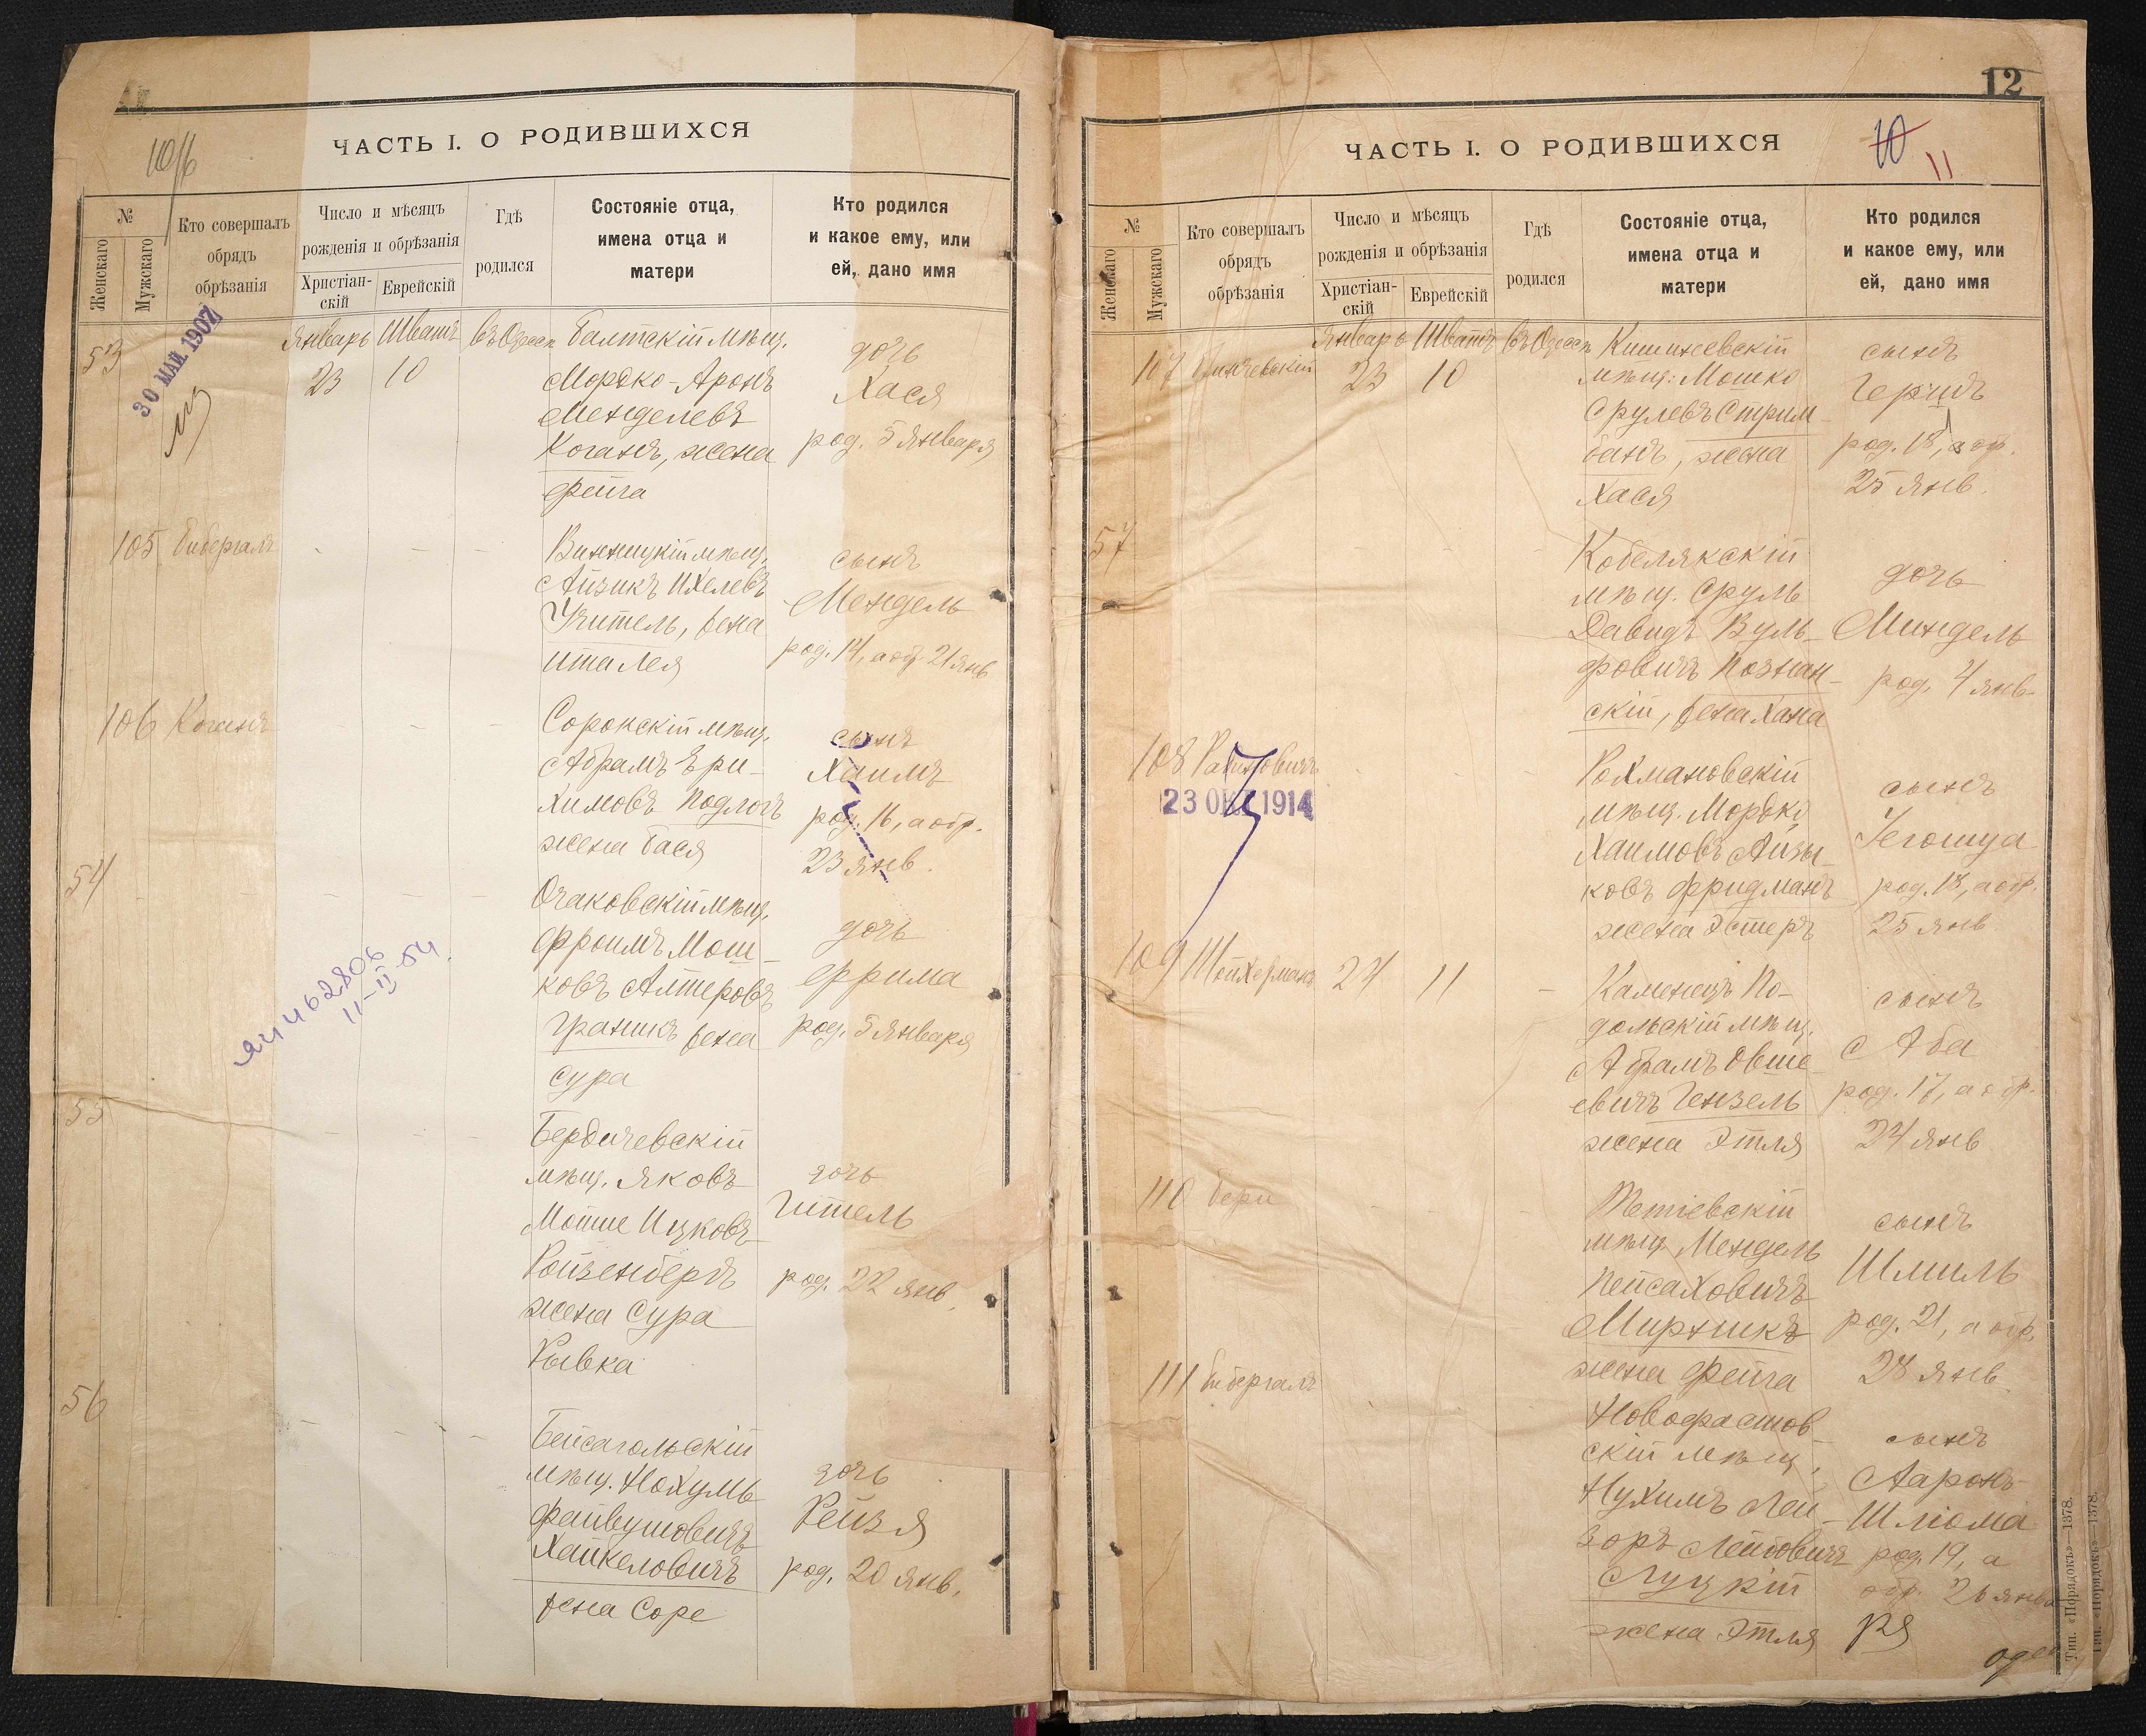 ЧАСТЬ I. О РОДИВШИХСЯ
№
Женскаго
Мужскаго
Кто совершалъ
обрядъ
обрѣзанія
Число и мѣсяцъ
рожденія и обрѣзанія
Христіан-
скій
Еврейскій
Гдѣ
родился
Состояніе отца,
имена отца и
матери
Кто родился
и какое ему, или
ей, дано имя
53
30 МАЙ 1907
Январь Шватъ въ Одессѣ
23 10
Балтскій мѣщ.
Мордко-Аронъ
Менделевъ
Коганъ, жена
Фейга
дочь
Хася
род. 5 Января
105 Бибергалъ
Винницкій мѣщ.
Айзикъ Ихелевъ
Учитель, жена
Ита Лея
сынъ
Мендель
род. 14, а обр. 21 янв
106 Коганъ
Сорокскій мѣщ.
Абрамъ Ери-
химовъ Подлогъ
жена Бася
сынъ
Хаимъ
род. 16, а обр.
23 янв.
54
Очаковскій мѣщ.
Фроимъ Мош-
ковъ Алтеровъ
Граникъ жена
Сура
дочь
Фрима
род. 5 Января
462806
11-II-54
55
Бердичевскій
мѣщ. Яковъ
Мотше Ицковъ
Ройзенбергъ
жена Сура
Рывка
дочь
Гитель
род. 22 янв.
56
Бейсагольскій
мѣщ. Нохумъ
Файвушовичъ
Хайкеловичъ
жена Соре
дочь
Рейзя
род. 20 янв.
12
10
11
ЧАСТЬ I. О РОДИВШИХСЯ
№
Женскаго
Мужскаго
Кто совершалъ
обрядъ
обрѣзанія
Число и мѣсяцъ
рожденія и обрѣзанія
Христіан-
скій
Еврейскій
Гдѣ
родился
Состояніе отца,
имена отца и
матери
Кто родился
и какое ему, или
ей, дано имя
Январь Шватъ въ Одессѣ
107 Пинчевскій 23 10
Кишиневскій
мѣщ. Мошко
Срулевъ Стрим-
банъ, жена
Хася
сынъ
Гершъ
род. 18, а обр.
25 янв.
57
Кобелякскій
мѣщ. Сруль
Давидъ Вуль-
фовичъ Познан-
скій, жена Хана
дочь
Миндель
род. 4 янв.
108 Рабиновичъ
23 ОКТ 1914
Рохмановскій
мѣщ. Мордко
Хаимовъ Айзы-
ковъ Фридманъ
жена Эстеръ
сынъ
Іегошуа
род. 18, а обр.
25 янв.
109 Шойхерманъ 24 11
Каменецъ По-
дольскій мѣщ.
Абрамъ Овше
евичъ Гензель
жена Этля
сынъ
Аба
род. 17, а обр.
24 янв
110 Бери
Тетіевскій
мѣщ. Мендель
Пейсаховичъ
Миртикъ
жена Фейга
сынъ
Шмиль
род. 21, а обр.
28 янв.
111 Бибергалъ
Новофастов-
скій мѣщ.
Нухимъ Лей-
зоръ Лейбовичъ
Луцкій
жена Этля
сынъ
Ааронъ
Шлюма
род. 19, а
обр. 26 янва
ря
Тип. «Порядокъ»—1378.
Тип. «Порядокъ»—1378.